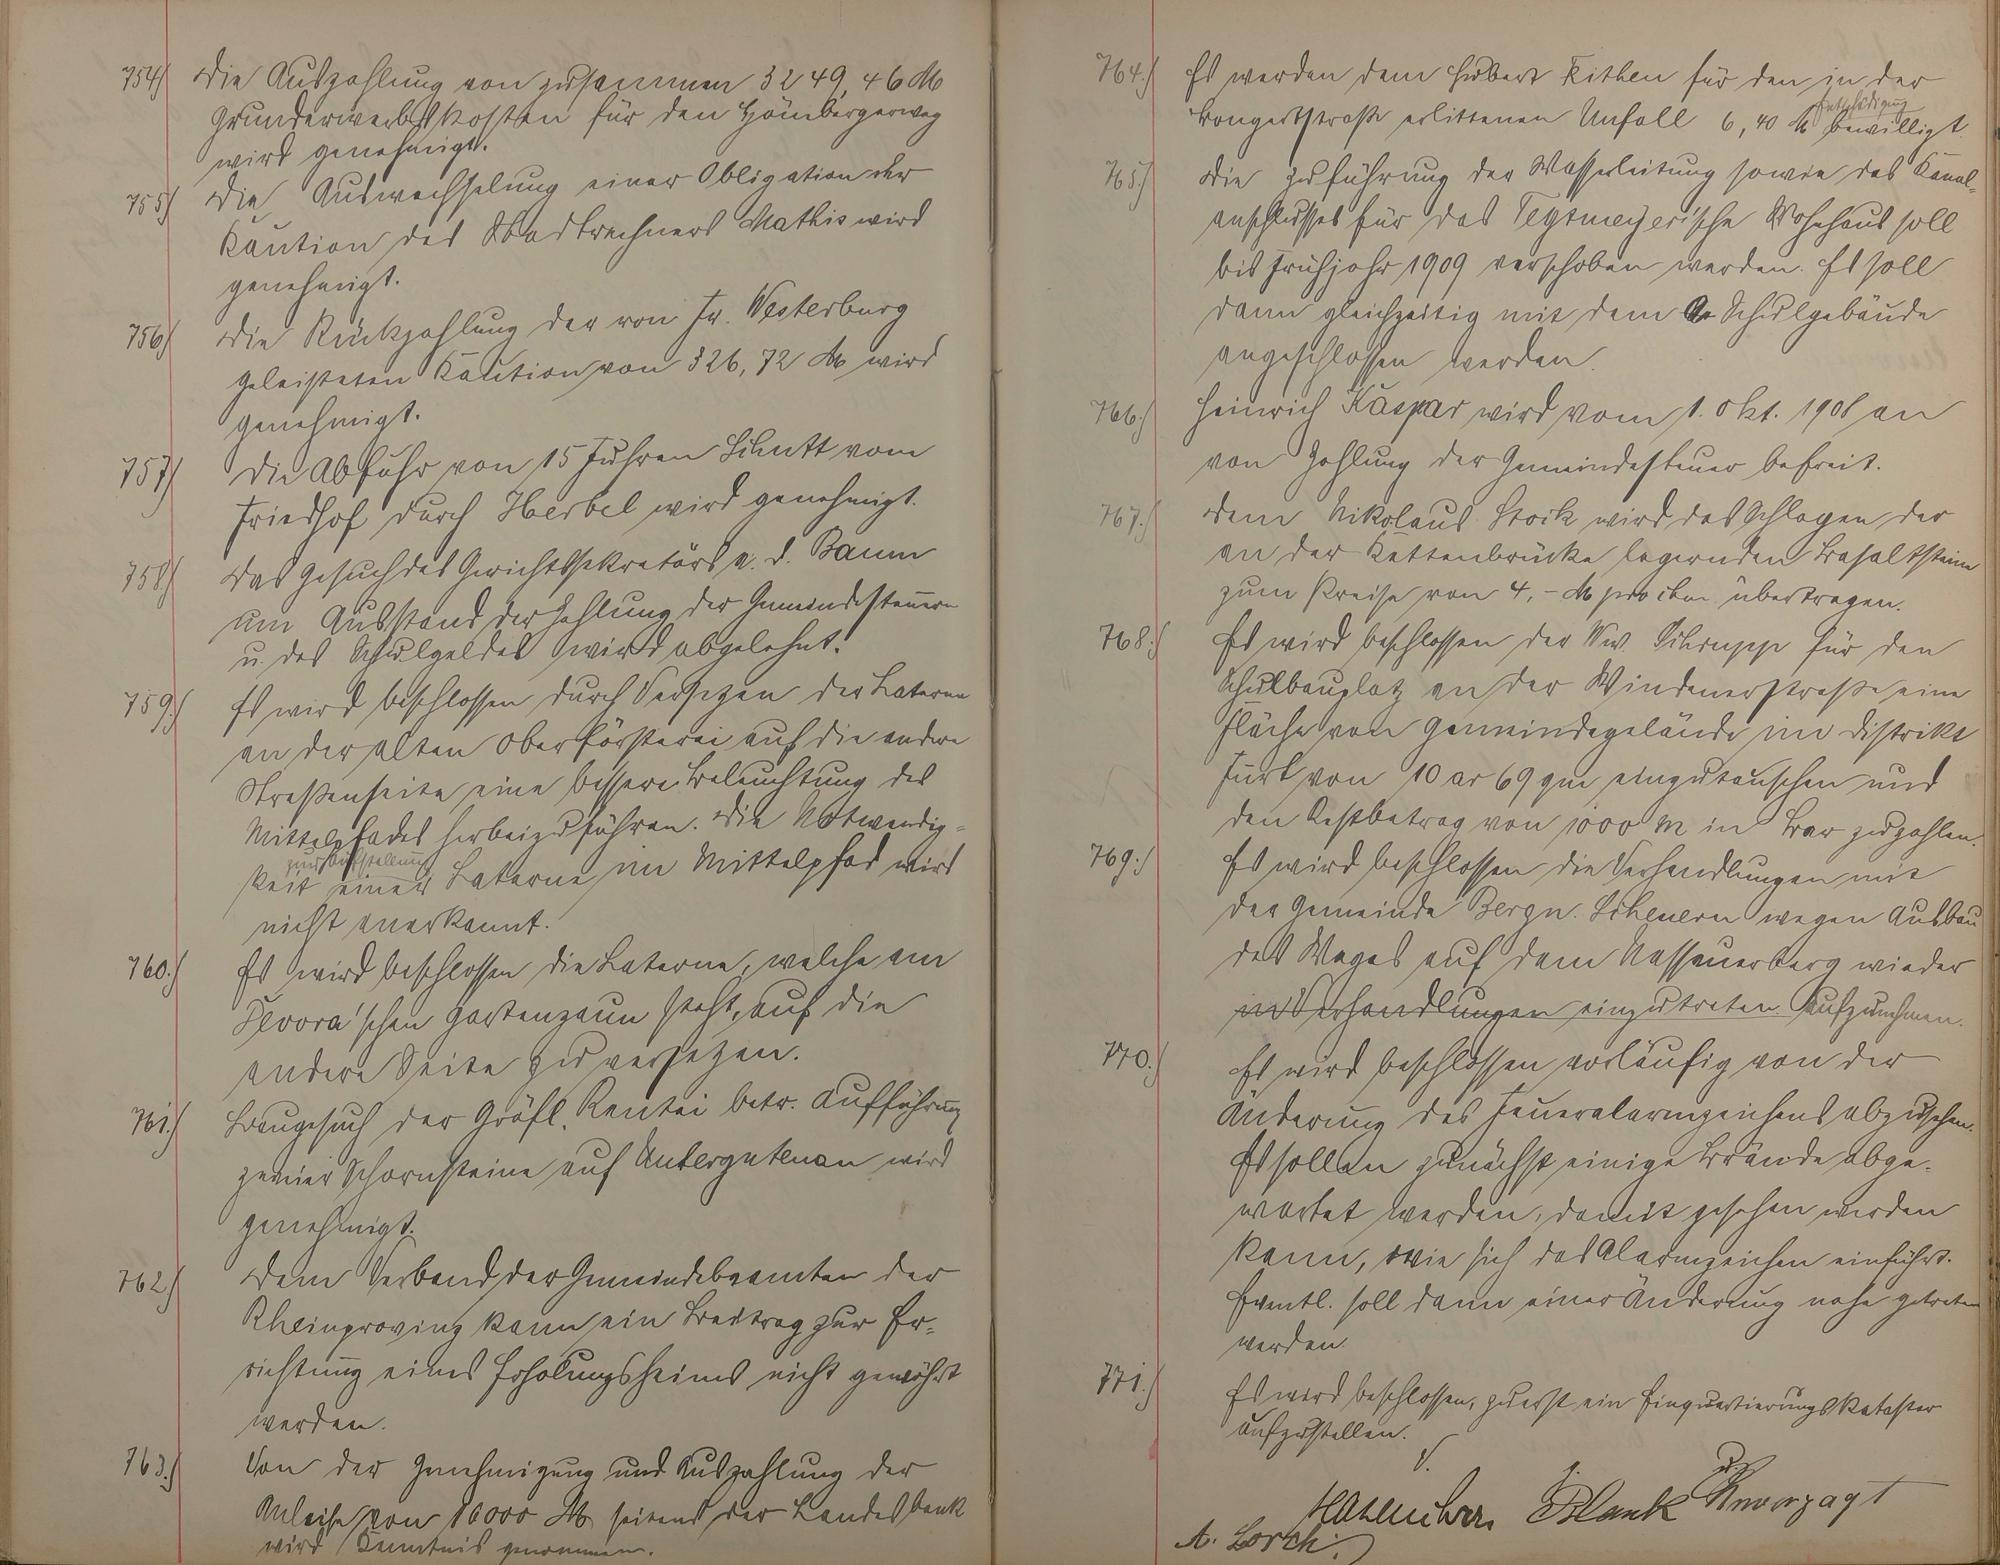 754) Die Auszahlung von zusammen 3249,46 M
Grunderwerbskosten für den Hömbergerweg
wird genehmigt.
755) Die Auswechselung einer Obligation der
Kaution des Stadtrechners Mathis wird
genehmigt.
756) Die Rückzahlung der von Fr. Westerburg
geleisteten Kaution von 326,72 M wird
genehmigt.
757) Die Abfuhr von 15 Fuhren Schutt vom
Friedhof durch Herbel wird genehmigt.
758) Das Gesuch des Gerichtssekretärs a. d. Baum
um Ausstand der Zahlung der Gemeindesteuern
u. des Schulgeldes wird abgelehnt.
759.) Es wird beschlossen durch Versetzen der Laterne
an der alten Oberförsterei auf die andere
Straßenseite eine bessere Beleuchtung des
Mittelpfades herbeizuführen. Die Notwendig-
zur Aufstellung
keit einer Laterne im Mittelpfad wird
nicht anerkannt.
760.) Es wird beschlossen die Laterne, welche am
Flvora'schen Gartenzaun steht, auf die
andere Seite zu versetzen.
761.) Baugesuch der Gräfl. Rentei betr. Aufführung
zweier Schornsteine auf Untergutenau wird
genehmigt.
762.) Dem Verband der Gemeindebeamten der
Rheinprovinz kann ein Beitrag zur Er-
richtung eines Erholungsheims nicht gewährt
werden.
763.) Von der Genehmigung und Auszahlung der
Anleihe von 16000 M seitens der Landesbank
wird Kenntnis genommen.
764.) Es werden dem Hubert Kithen für den in der
Entschädigung
Bongertstraße erlittenen Unfall 6,40 M bewilligt.
765.) Die Zuführung der Wasserleitung sowie des Kanal-
anschlusses für das Tegtmeyer'sche Wohnhaus soll
bis Frühjahr 1909 verschoben werden. Es soll
dann gleichzeitig mit dem Schulgebäude
angeschlossen werden.
766.) Heinrich Kaspar wird vom 1. Okt. 1908 an
von Zahlung der Gemeindesteuer befreit.
767.) Dem Nikolaus Stock wird das Schlagen der
an der Kettenbrücke lagernden Basaltsteine
zum Preise von 4,- M pro cbm übertragen.
768.) Es wird beschlossen der Ww. Schrupp für den
Schulbauplatz an der Windenerstraße eine
Fläche von Gemeindegelände im Distrikt
Furt von 10 ar 69 qm einzutauschen und
den Restbetrag von 1000 M in Bar zu zahlen.
769.) Es wird beschlossen die Verhandlungen mit
der Gemeinde Bergn. Scheuern wegen Ausbau
des Weges auf dem Nassauerberg wieder
in Verhandlungen einzutreten aufzunehmen.
770.) Es wird beschlossen vorläufig von der
Änderung des Feueralarmzeichens abzusehen.
Es sollen zunächst einige Brände abge-
wartet werden, damit gesehen werden
kann, wie sich das Alarmzeichen einführt.
Eventl. soll dann einer Änderung nahe getreten
werden.
771.) Es wird beschlossen, zuerst ein Einquartierungskataster
aufzustellen.
Hasenclever. Blank Unverzagt
A. Lorch.